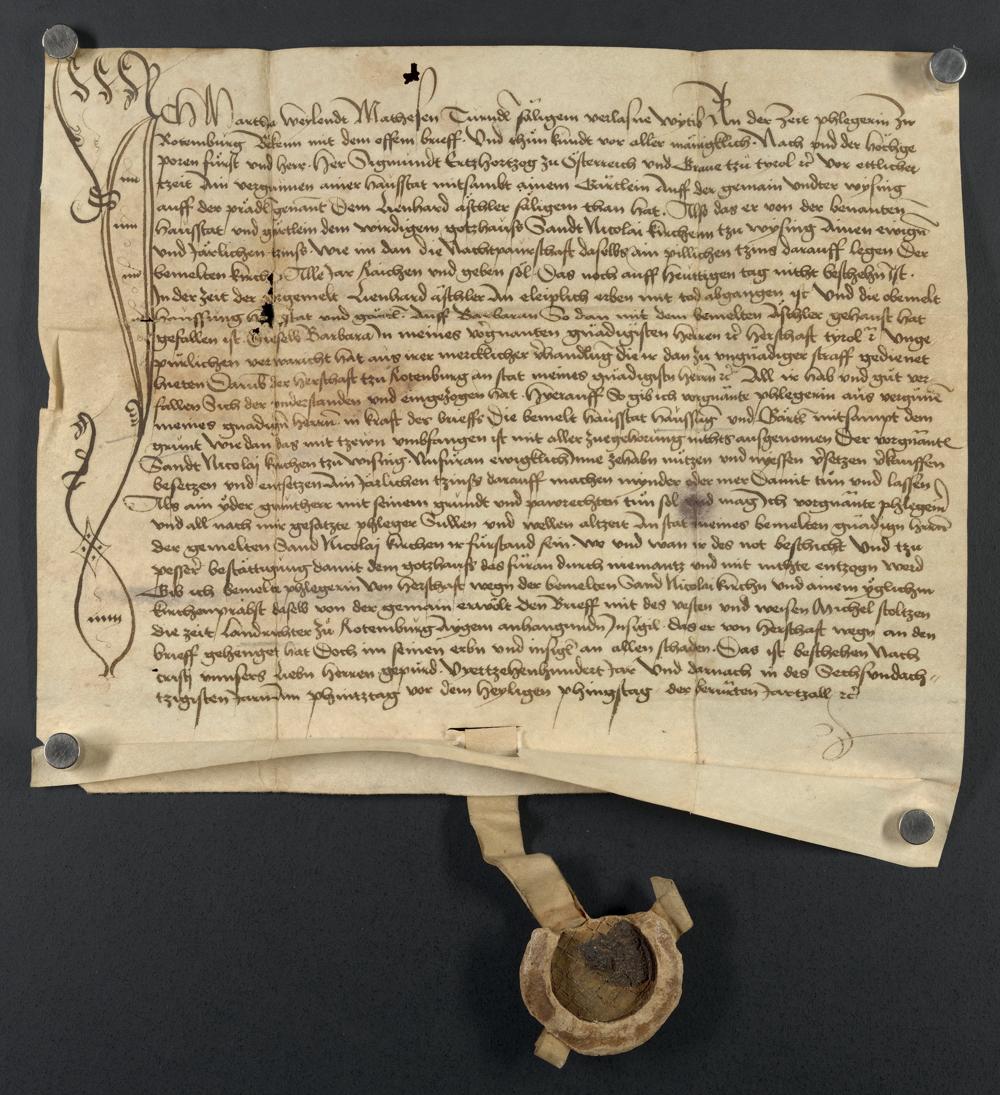 Ich Martha weylendt Mathesen Turndl säligem verlasne wytib An der Zeit phlegerin zu
Rotemburg Bekenn mit dem offem brieff. Und thun kundt vor aller mäniglich. Nach und der hochge
poren fürst und herr. Her Sigmundt Ertzhertzog zu Österreich und Grave tzu tyrol etc vor ettlicher
tzeit Ain vergunnen ainer haüsstat mitsambt ainem Gärtlein Auff der gemain undter wysing
auff der prädl genant Dem Lienhard äschler säligem than hat. Also das er von der benanten
haüsstat und gärtlein dem wirdigem gotzhaüss Sandt Nicolai kirchenn tzu wysing Ainen ewign
und Järlichen tzinss. wie im dan die Nachtpaurschaft daselbs ain pillichen tzins darauff legen Der
bemelten kirchn Alle Jar Raichen und geben sol. Das noch auff heüttigen tag nicht beschehn ist.
In der zeit der gemelt Lienhard äschler An eleiplich erben mit tod abgangen ist Und die obemelt
haussung stat und gärtl. Auff Barbaran So dan mit dem bemelten Äschler gehaust hat
gefallen ist. Dieselb Barbara In meines vorgnanten gnädigisten herren etc herschaft tyrol etc Unge
pürlichen verwaricht hat aus irer mercklicher vhandlung die ir dan zu ungnädiger straff gedienet
hieten Darub der herschaft tzu Rotenburg an stat meines gnädigistn herrn etc All ir hab und güt ver
fallen Sich der understanden und eingezogen hat. Hierauff So gib ich vorgnante phlegerin aus vergunen
meines gnadign herrn. in kraft des brieffs Die bemelt haüsstat haussung und Gärtl mitsampt dem
grunt wie dan das mit tzewn umbfangen ist mit aller zuegehorung nichts ausgenomen Der vorgnante
Sandt Nicolai kirchen tzu wising Nufüran ewigklich Inne zehabn nützen und nyessen vsetzen vkauffen
besetzen und entsetzen Ain Järlichen tzinss darauff machen mynder oder mer Damit tun und lassen
Als ain yder gruntherr mit seinem grundt und pawrechten tün sol und mag Ich vorgnante phlegerin
und all nach mir gesatzte phleger Sullen und wellen altzeit An stat meines bemelten gnädign hern
der gemelten Sand Nicolai kirchen ir fürstand sein. wo und wan ir des not beschicht Und tzu
pesser bestättigung damit dem gotzhauss das füran durch niemantz und mit nichte entzogn werd
Gib ich bemelte phlegerin Von herschaft wegn der bemelten Sand Nicolai kirchn und ainem yglichem
kirchenprabst daselb von der gemain erwölt Den Brieff mit des vesten und weisen Michel stoltzen
die zeit Landrichter zu Rotemburg Aygem anhangundn Insigil. das er von herschaft wegn an den
brieff gehenget hat Doch im seinen erbn und insigl an allen schaden. Das ist beschehen Nach
cristi unnsers Liebn herren gepürd Viertzehenhundert Jar Und darnach in des Sechsundach=
tzigisten Jarn Am phintztag vor dem heyligen phingstag der berürten Jartzall etc